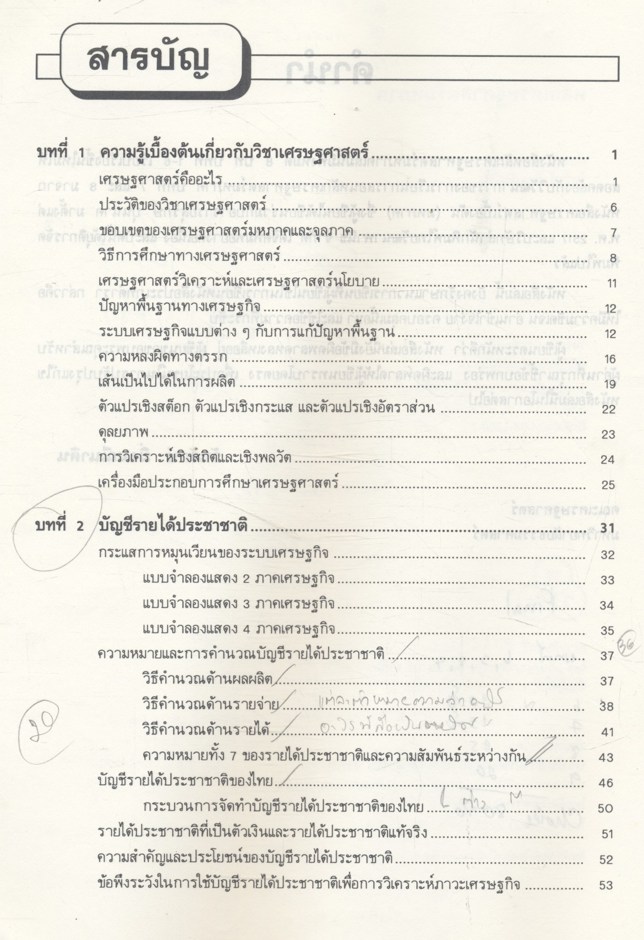 สารบัญ
บทที่ 1 ความรู้เบื้องต้นเกี่ยวกับวิชาเศรษฐศาสตร์ 1
เศรษฐศาสตร์คืออะไร 1
ประวัติของวิชาเศรษฐศาสตร์ 6
ขอบเขตของเศรษฐศาสตร์มหภาคและจุลภาค 7
วิธีการศึกษาทางเศรษฐศาสตร์ 8
เศรษฐศาสตร์วิเคราะห์และเศรษฐศาสตร์นโยบาย 11
ปัญหาพื้นฐานทางเศรษฐกิจ 12
ระบบเศรษฐกิจแบบต่าง ๆ กับการแก้ปัญหาพื้นฐาน 12
ความหลงผิดทางตรรก 16
เส้นเป็นไปได้ในการผลิต 19
ตัวแปรเชิงสต็อก ตัวแปรเชิงกระแส และตัวแปรเชิงอัตราส่วน 22
ดุลยภาพ 23
การวิเคราะห์เชิงสถิตและเชิงพลวัต 24
เครื่องมือประกอบการศึกษาเศรษฐศาสตร์ 25
บทที่ 2 บัญชีรายได้ประชาชาติ 31
กระแสการหมุนเวียนของระบบเศรษฐกิจ 32
แบบจำลองแสดง 2 ภาคเศรษฐกิจ 33
แบบจำลองแสดง 3 ภาคเศรษฐกิจ 34
แบบจำลองแสดง 4 ภาคเศรษฐกิจ 35
ความหมายและการคำนวณบัญชีรายได้ประชาชาติ 37
วิธีคำนวณด้านผลผลิต 37
วิธีคำนวณด้านรายจ่าย 38
วิธีคำนวณด้านรายได้ 41
ความหมายทั้ง 7 ของรายได้ประชาชาติและความสัมพันธ์ระหว่างกัน 43
บัญชีรายได้ประชาชาติของไทย 46
กระบวนการจัดทำบัญชีรายได้ประชาชาติของไทย 50
รายได้ประชาชาติที่เป็นตัวเงินและรายได้ประชาชาติแท้จริง 51
ความสำคัญและประโยชน์ของบัญชีรายได้ประชาชาติ 52
ข้อพึงระวังในการใช้บัญชีรายได้ประชาชาติเพื่อการวิเคราะห์ภาวะเศรษฐกิจ 53